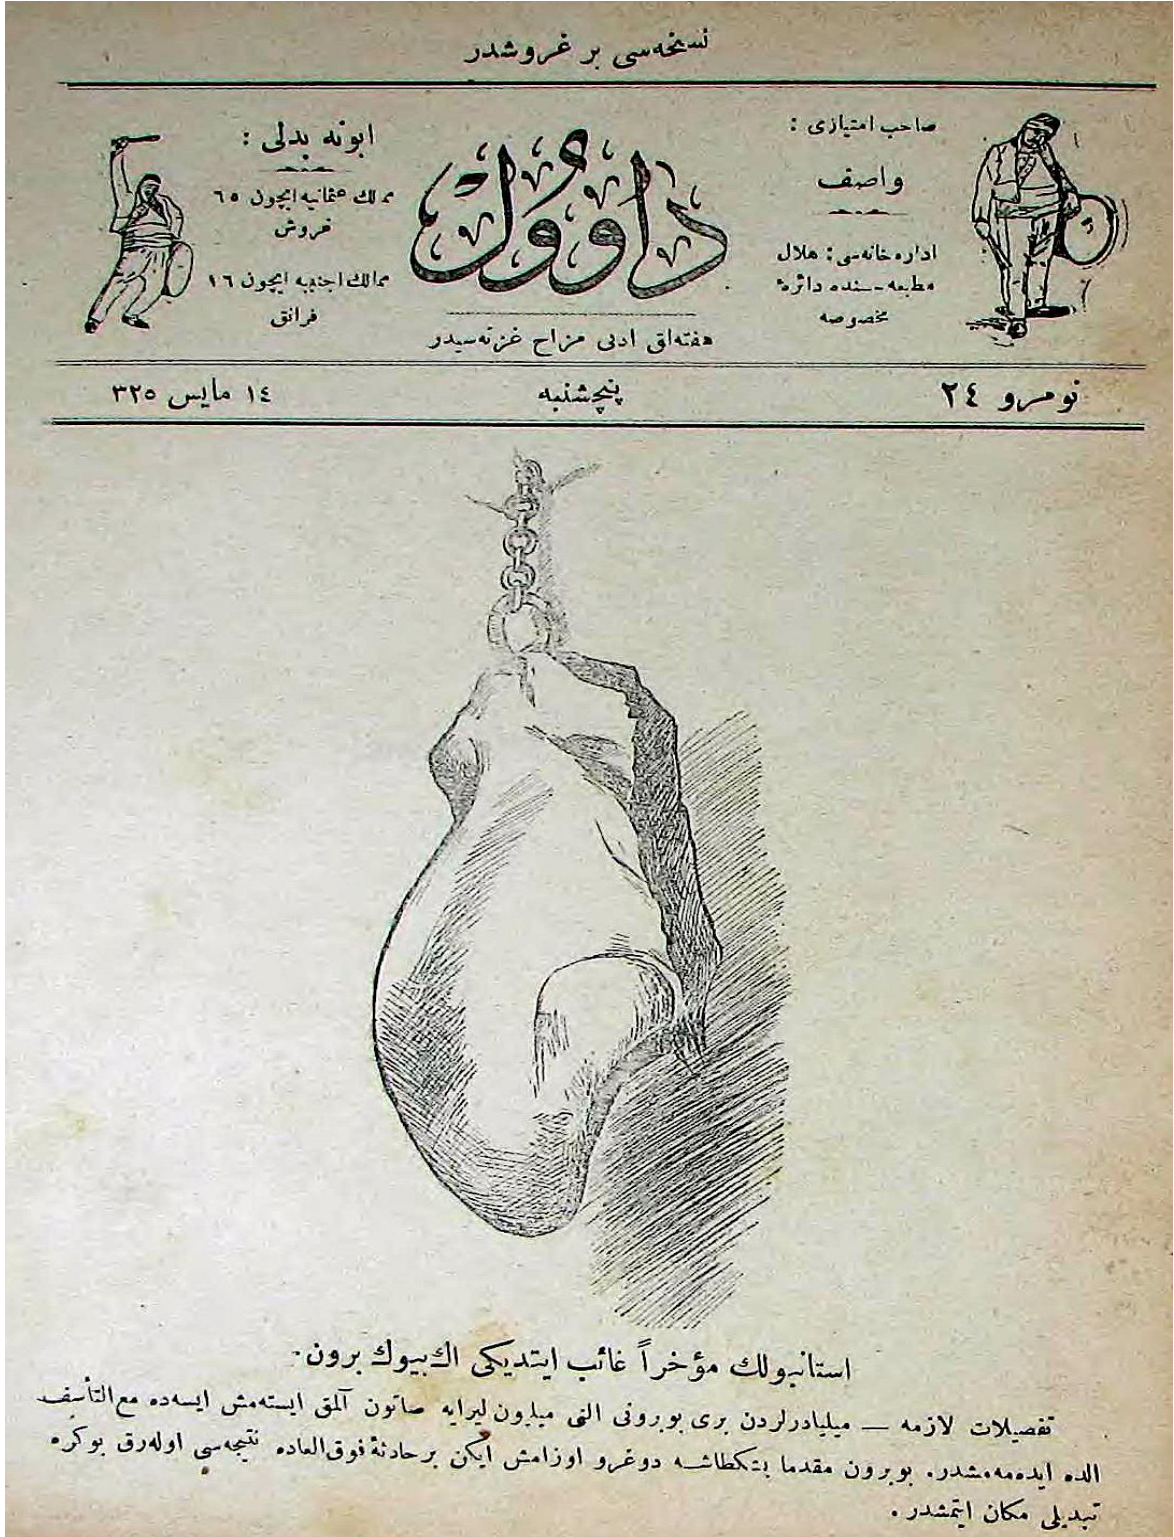 نسخه‌سی بر غروشدر
صاحب امتیازی :
واصف
اداره‌خانه‌سی : هلال
مطبعه‌سنده دائرهٔ
مخصوصه
داوول
هفته‌لق ادبی مزاح غزته‌سیدر
ابونه بدلی :
ممالك عثمانیه ایچون ٦٥
غروش
ممالك اجنبیه ایچون ١٦
فرانق
نومرو ٢٤
پنچشنبه
١٤ مایس ٣٢٥
استانبولك مؤخراً غائب ایتدیکی اك بیوك برون.
تفصیلات لازمه — میلیادرلردن بری بو برونی اللی میلیون لیرایه صاتون آلمق ایسته‌مش ایسه‌ده مع التأسف
الده ایده‌مه‌مشدر. بو برون مقدما بشکطاشه دوغرو اوزامش ایکن بر حادثهٔ فوق العاده نتیجه‌سی اوله‌رق بو کره
تبدیلی مکان ایتمشدر .